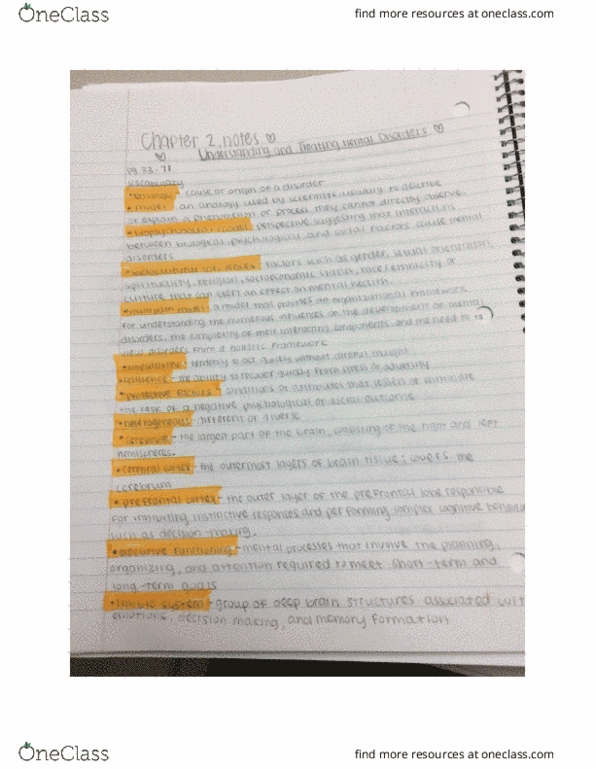 OneClass
find more resources at oneclass.com
Chapter 2 notes ♡
♡ Understanding and Treating Mental Disorders ♡
Vocabulary
• etiology - cause or origin of a disorder
• model - an analogy used by scientists, usually to describe
or explain a phenomenon or process they cannot directly observe.
• biopsychosocial model - perspective suggesting that interactions
between biological, psychological and social factors cause mental
disorders
factors such as gender, sexual orientation,
spirituality, religion, socioeconomic status, race/ethnicity or
culture that can exert an effect on mental health.
• multipath model - a model that provides an organizational framework
for understanding the numerous influences on the development on mental
disorders, the complexity of their interacting components, and the need to
view disorders from a holistic framework
• impulsivity - tendency to act quickly without careful thought
• resilience - the ability to recover quickly from stress or adversity
• protective factors - conditions or attributes that lessen or eliminate
the risk of a negative psychological or social outcome
• heterogeneous - different or diverse
• cerebrum - the largest part of the brain, consisting of the right and left
hemispheres.
• cerebral cortex - the outermost layers of brain tissue; covers the
cerebrum
• prefrontal cortex - the outer layer of the prefrontal lobe responsible
for inhibiting instinctive responses and performing complex cognitive behavi
such as decision-making.
• executive functioning - mental processes that involve the planning,
organizing, and attention required to meet short-term and
long-term goals
• limbic system - group of deep brain structures associated wit
emotions, decision making, and memory formation
OneClass
find more resources at oneclass.com